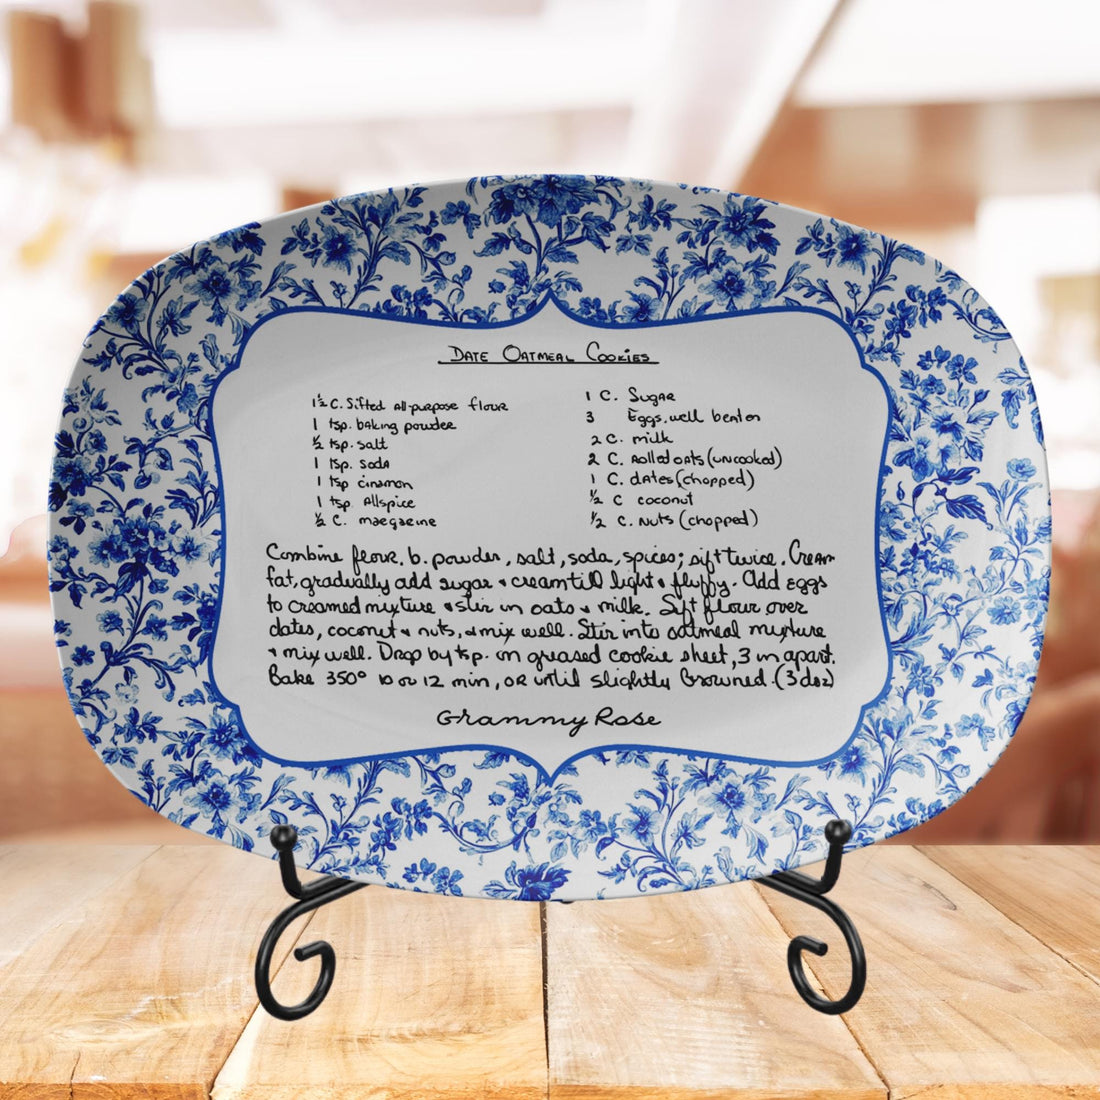 Date Oatmeal Cookies
1½ C. Sifted all-purpose flour
1 tsp. baking powder
½ tsp. salt
1 tsp. soda
1 tsp cinamon
1 tsp. Allspice
½ C. maegaeine
1 C. Sugar
3 Eggs, well beaten
2 C. milk
2 C. Rolled oats (uncooked)
1 C. dates (chopped)
½ C coconut
½ C. nuts (chopped)
Combine flour, b. powder, salt, soda, spices; sift twice. Cream
fat, gradually add sugar & cream till light & fluffy. Add eggs
to creamed mixture & stir in oats & milk. Sift flour over
dates, coconut & nuts, & mix well. Stir into oatmeal mixture
& mix well. Drop by tsp. on greased cookie sheet, 3 in apart.
Bake 350° 10 or 12 min, or until slightly browned. (3 doz)
Grammy Rose